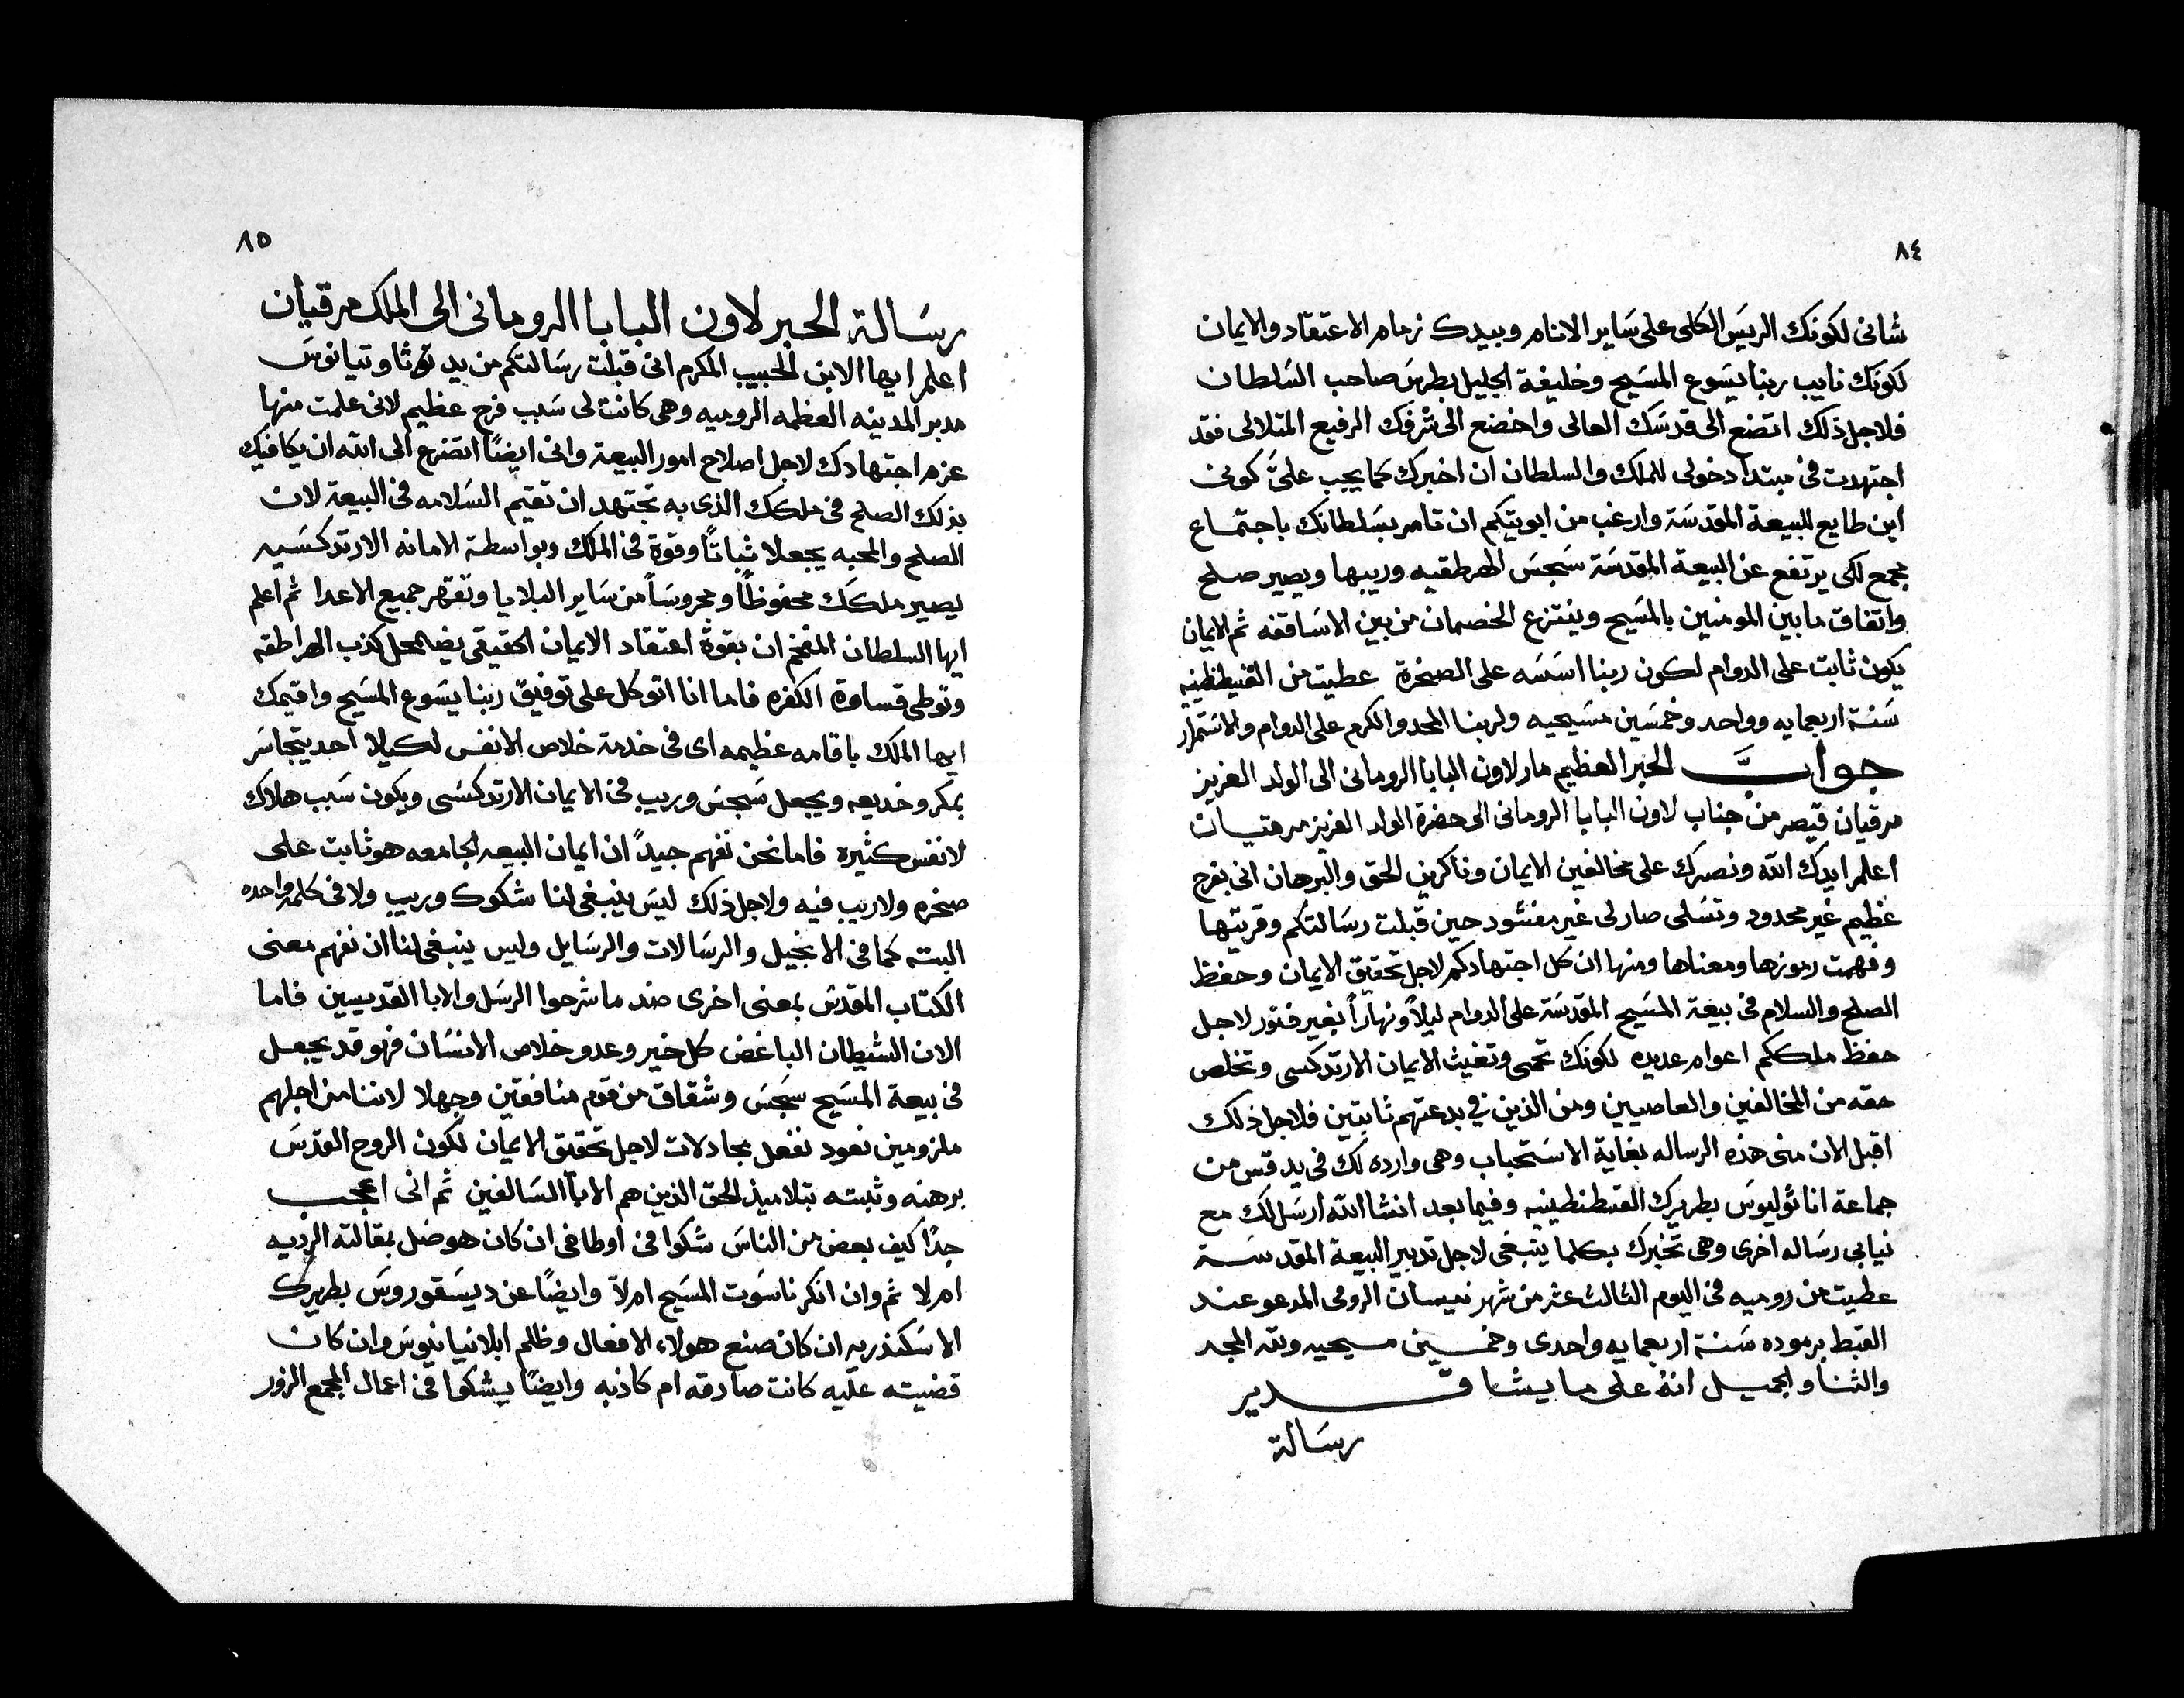 ٨٤
شانى لكونك الريس الكلى على ساير الانام وبيدك زمام الاعتقاد والايمان
لكونك نايب ربنا يسوع المسيح وخليفة الجليل بطرس صاحب السلطان
فلاجل ذلك اتضع الى قدسك العالى واخضع الى شرفك الرفيع المتلالى فقد
اجتهدت فى مبتدا دخولى للملك والسلطان ان اخبرك كما يجب علىَّ كونى
ابن طايع للبيعة المقدسة وارغب من ابويتكم ان تامر بسلطانك باجتماع
مجمع لكى يرتفع عن البيعة المقدسة سجس الهرطقيه وريبها ويصير صلح
واتفاق ما بين المومنين بالمسيح وينتزع الخصمان من بين الاساقفه ثم الايمان
يكون ثابت على الدوام لكون ربنا اسسه على الصخرة عطيت من القسطنطينيه
سنة اربعمايه وواحد وخمسين مسيحيه ولربنا المجد والكرم على الدوام والاستمرار
جواب الحبر العظيم مار لاون البابا الرومانى الى الولد العزيز
مرقيان قيصر من جناب لاون البابا الرومانى الى حضرة الولد العزيز مرقيان
اعلم ايدك الله ونصرك على مخالفين الايمان وناكرين الحق والبرهان انى بفرح
عظيم غير محدود وتسلى صار لى غير مفسود حين قبلت رسالتكم وقريتها
وفهمت رموزها ومعناها ومنها ان كل اجتهادكم لاجل تحقيق الايمان وحفظ
الصلح والسلام فى بيعة المسيح المقدسة على الدوام ليلاً ونهاراً بغير فتور لاجل
حفظ ملككم اعوام عديده لكونك تحمى وتغيث الايمان الارتدكسى وتخلص
حقه من المخالفين والعاصيين ومن الذين فى بدعتهم ثابتين فلاجل ذلك
اقبل الان منى هذه الرساله بغاية الاستحباب وهى وارده لك فى يد قس من
جماعة اناتوليوس بطريرك القسطنطينيه وفيما بعد انشا الله ارسل لك مع
نيابى رساله اخرى وهى تخبرك بكلما ينبغى لاجل تدبير البيعة المقدسة
عطيت من روميه فى اليوم الثالث عشر من شهر نيسان الرومى المدعو عند
القبط برموده سنة اربعمايه واحدى وخمسين مسيحيه ولله المجد
والثنا والجميل انه على ما يشا قدير
رسالة
٨٥
رسالة الحبر لاون البابا الرومانى الى الملك مرقيان
اعلم ايها الابن الحبيب المكرم انى قبلت رسالتكم من يد
مدبر المدينه العظمه الروميه وهى كانت لى سبب فرح عظيم لانى علمت منها
عزم اجتهادك لاجل اصلاح امور البيعة وانى ايضاً اتضرع الى الله ان يكافيك
بذلك الصلح فى ملكك الذى به تجتهد ان تقيم السلامه فى البيعة لان
الصلح والمحبه يجعلا ثباتاً وقوة فى الملك وبواسطة الامانه الارتدكسيه
يصير ملكك محفوظاً ومحروساً من ساير البلايا وتقهر جميع الاعدا ثم اعلم
ايها السلطان المفخم ان بقوة اعتقاد الايمان الحقيقى يضامحل كذب الهراطقه
وتوطى قساوة الكفره فاما انا اتوكل على توفيق ربنا يسوع المسيح واقيمك
ايها الملك باقامه عظيمه اى فى خدمة خلاص الانفس لكيلا احد يتجاسر
بمكر وخديعه ويجعل سجس وريب فى الايمان الارتدكسى ويكون سبب هلاك
لانفس كثيره فاما نحن نفهم جيداً ان ايمان البيعه الجامعه هو ثابت على
صخره ولا ريب فيه ولاجل ذلك ليس ينبغى لنا شكوك وريب ولا فى كلمه واحده
البته كما فى الانجيل والرسالات والرسايل وليس ينبغى لنا ان نفهم معنى
الكتاب المقدس بمعنى اخرى ضد ما شرحوا الرسل والابا القديسين فاما
الان الشيطان الباغض كل خير وعدو خلاص الانسان فهو قد يجعل
فى بيعة المسيح سجس وشقاق من قوم منافقين وجهلا لاننا من اجلهم
ملزومين نعود نفعل مجادلات لاجل تحقيق الايمان لكون الروح القدس
برهنه وثبته بتلاميذ الحق الذين هم الابا السالفين ثم انى اعجب
جداً كيف بعض من الناس شكوا فى اوطاخى ان كان هو ضل بمقالته الرديه
ام لا ثم وان انكر ناسوت المسيح ام لا وايضاً عن ديسقوروس بطريرك
الاسكندريه ان كان صنع هولاء الافعال وظلم ابلابيانوس وان كان
قضيته عليه كانت صادقه ام كاذبه وايضاً يشكوا فى اعمال المجمع الزور